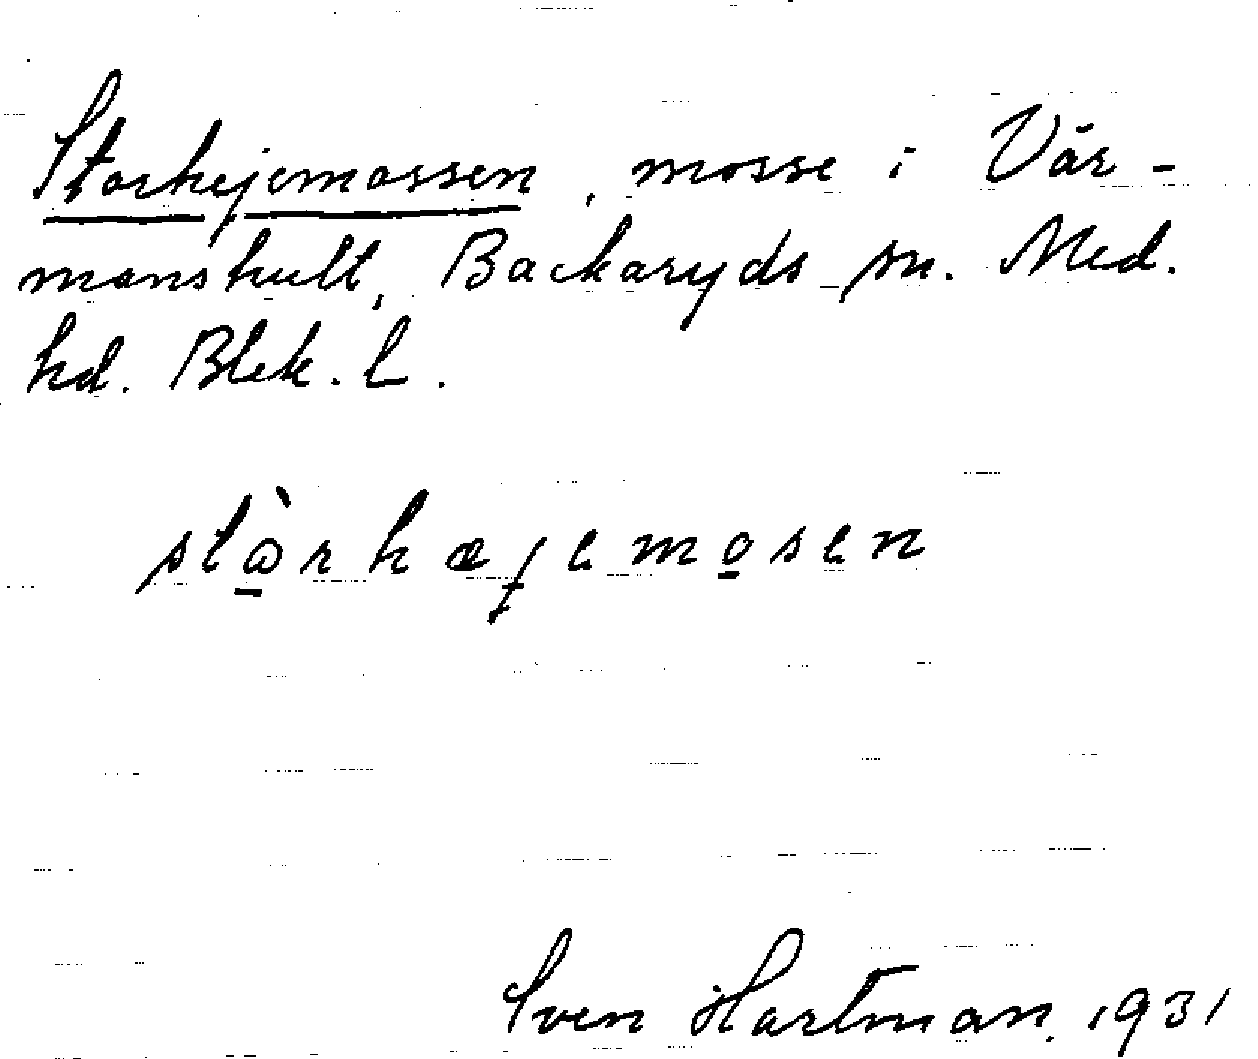 Storhejemossen, mosse i Vär-
manshult, Backaryds sn. Med.
hd. Blek. l.
stὼ̲rhæjemo̲sen
Sven Hartman. 1931